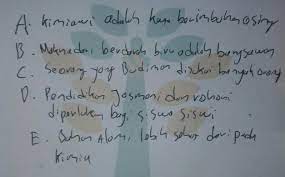 A. kimiawi adalah kata berimbuhan asing
B. Makna dari berdarah biru adalah bangsawan
C. Seorang yang Budiman disukai banyak orang
D. Pendidikan Jasmani dan rohani
diperlukan bagi siswa siswi
E. Bahan Alami lebih sehat dari pada
kimia